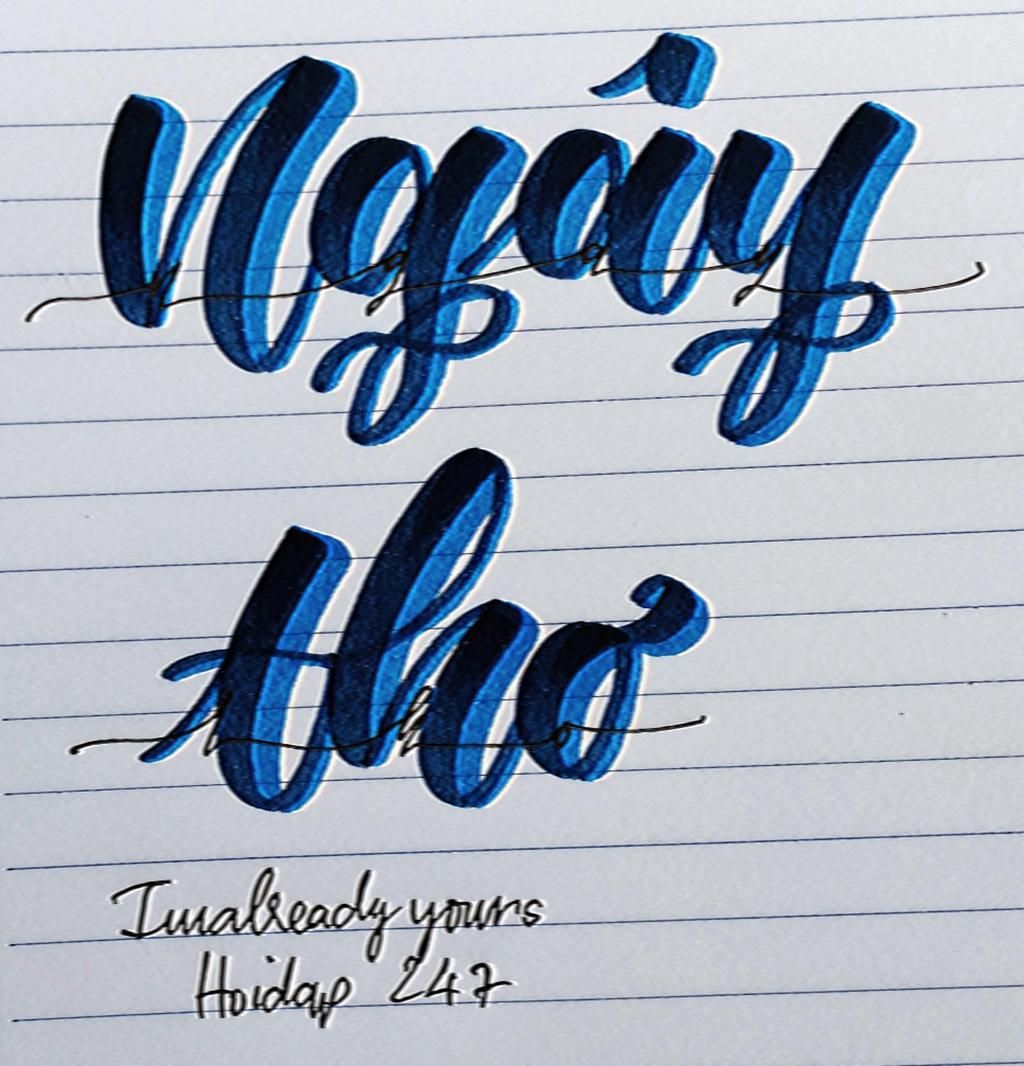 Ngây
thơ
Imalready yours
Hoidap 247